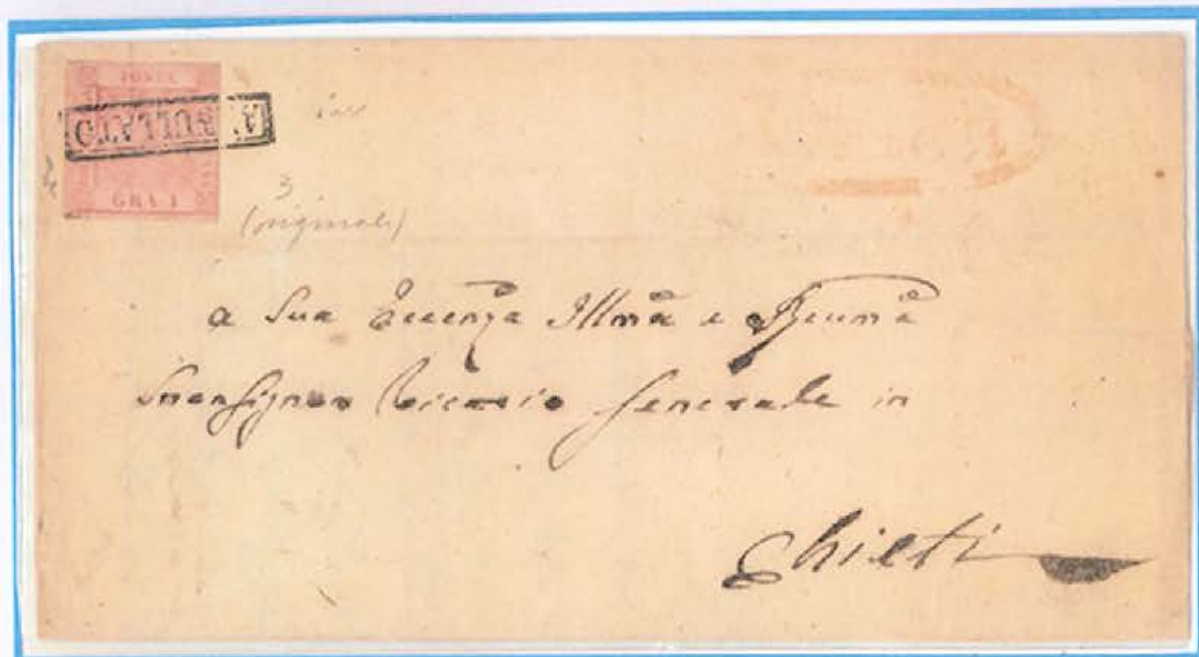 POSTA
ANNULLATO
GRA 1
3
(originale)
a Sua Eccenza Illma e Reuma
Monsignor Vicario Generale in
Chieti